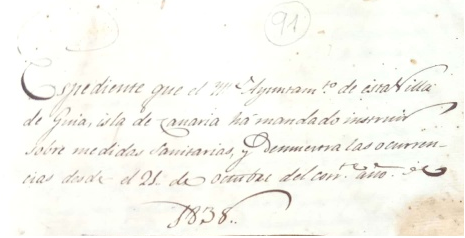 91
Espediente que el Yl.e Ayuntam.to de esta Villa
de Guia, isla de Canaria ha mandado instruir
sobre medidas sanitarias, y Denumerra las ocurren-
cias desde el 21. de octubre del corr.te año.
1838..